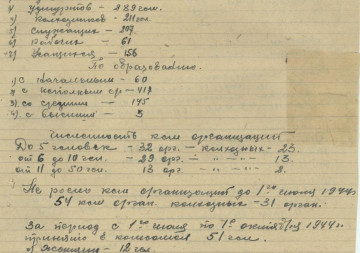 Удмуртов - 289 чел.
2) Колхозников - 211 чел.
3) Служащих - 297
4) Рабочих - 61
5) Учащихся - 156
По образованию.
1) С начальным - 60
2) с неполным ср - 411
3) со средним - 145
4) с высшим - 3
Численность ксм организаций
До 5 человек - 32 орг. - колхозных - 23.
от 6 до 10 чел. - 29 орг. - " - " - 13.
от 11 до 50 чел. 13 орг. - " - " - 2.
Не росли ксм организаций до 1го июля 1944г.
54 ксм орган. колхозных - 31 орган.
За период с 1го июля по 1е октября 1944г.
принято в комсомол 51 чел.
Женщин - 12 чел.